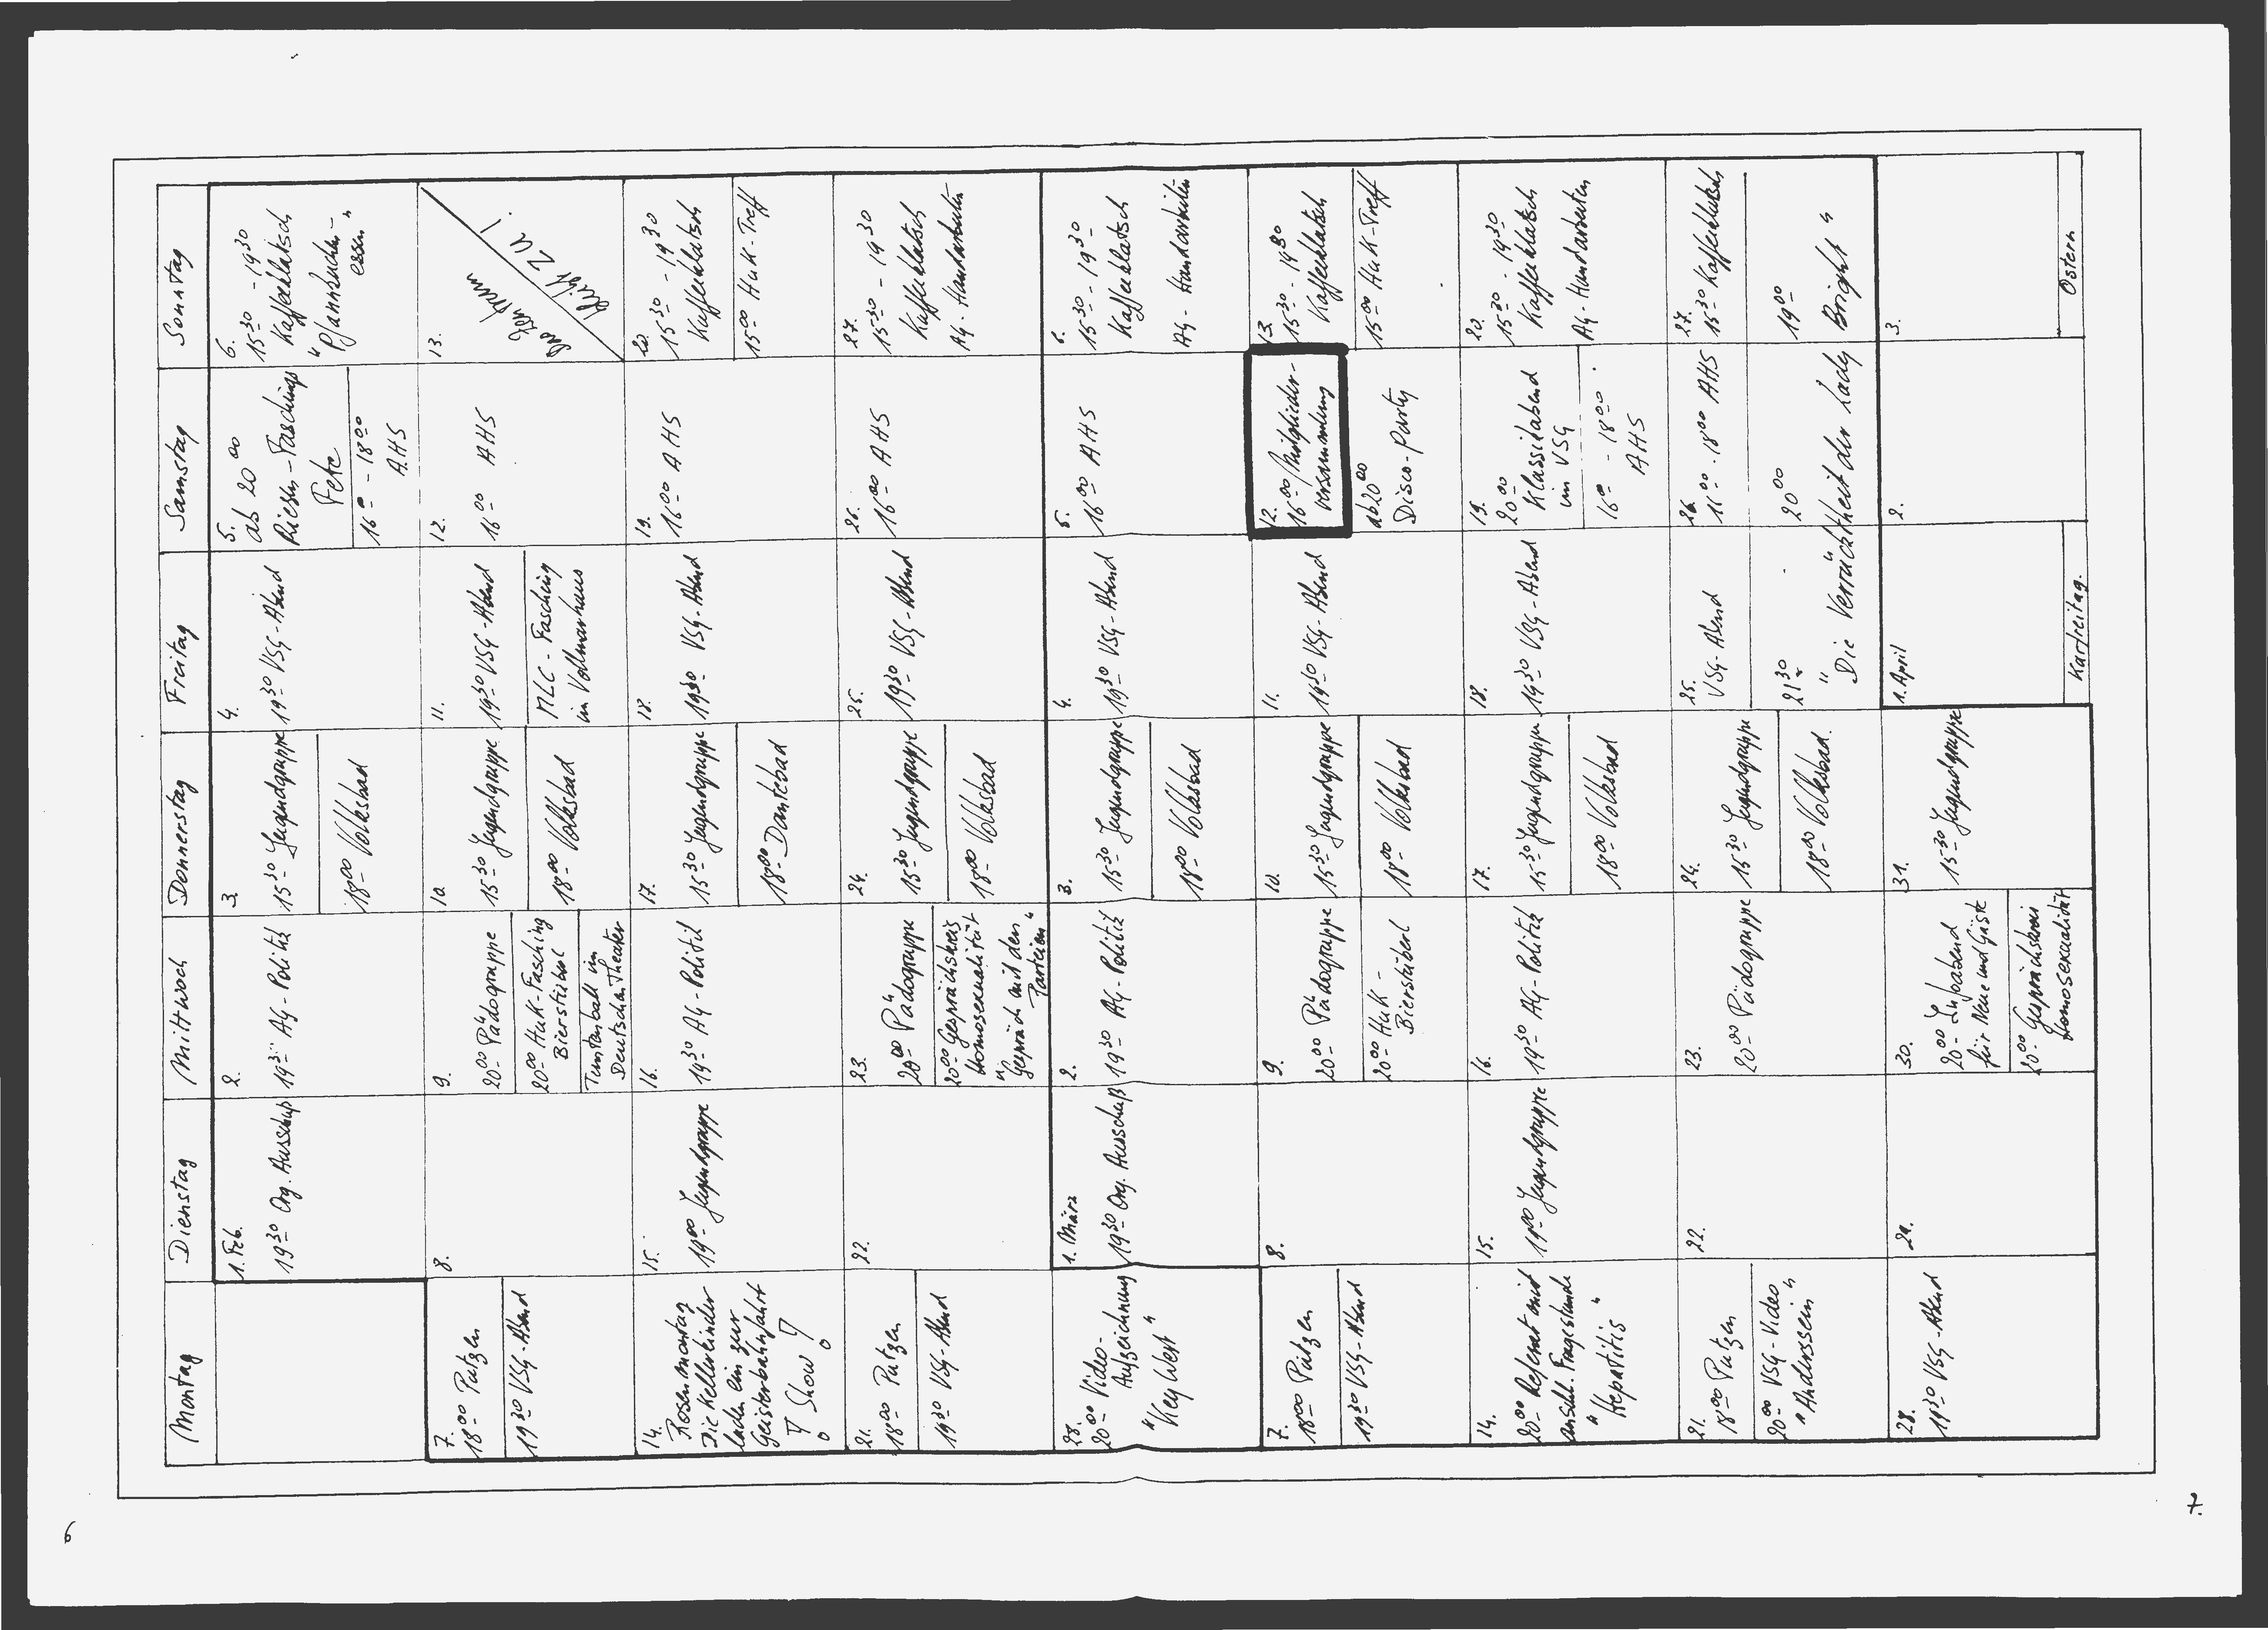 Montag
Dienstag
Mittwoch
Donnerstag
Freitag
Samstag
Sonntag
1. Feb.
19 30 Org. Ausschuß
2.
19 30 AG-Politik
3.
15 30 Jugendgruppe
18 00 Volksbad
4.
19 30 VSG-Abend
5.
ab 20 00
Riesen-Faschings
Fete
16 00 - 18 00
AHS
6.
15 30 - 19 30
Kaffeeklatsch
"Pfannkuchen-
essen"
7.
18 00 Putzen
19 30 VSG-Abend
8.
9.
20 00 Pädogruppe
20 00 HuK-Fasching
Bierstüberl
Tuntenball im
Deutschen Theater
10.
15 30 Jugendgruppe
18 00 Volksbad
11.
19 30 VSG-Abend
MLC-Fasching
im Vollmarhaus
12.
16 00 AHS
13.
Das Zentrum
bleibt ZU!
14.
Rosenmontag
Die Kellerkinder
laden ein zur
Geisterbahnfahrt
! Show !
15.
19 00 Jugendgruppe
16.
19 30 AG-Politik
17.
15 30 Jugendgruppe
18 00 Dantebad
18.
19 30 VSG-Abend
19.
16 00 AHS
20.
15 30 - 19 30
Kaffeeklatsch
15 00 HuK-Treff
21.
18 00 Putzen
19 30 VSG-Abend
22.
23.
20 00 Pädogruppe
20 00 Gesprächskreis
Homosexualität
"Gespräch mit den
Parteien"
24.
15 30 Jugendgruppe
18 00 Volksbad
25.
19 30 VSG-Abend
26.
16 00 AHS
27.
15 30 - 19 30
Kaffeeklatsch
AG-Handarbeiten
28.
20 00 Video-
Aufzeichnung
"Key West"
1. März
19 30 Org. Ausschuß
2.
19 30 AG-Politik
3.
15 30 Jugendgruppe
18 00 Volksbad
4.
19 30 VSG-Abend
5.
16 00 AHS
6.
15 30 - 19 30
Kaffeeklatsch
AG-Handarbeiten
7.
18 00 Putzen
19 30 VSG-Abend
8.
9.
20 00 Pädogruppe
20 00 HuK-
Bierstüberl
10.
15 30 Jugendgruppe
18 00 Volksbad
11.
19 30 VSG-Abend
12.
16 00 Mitglieder-
versammlung
ab 20 00
Disco-Party
13.
15 30 - 19 30
Kaffeeklatsch
15 00 HuK-Treff
14.
20 00 Referat mit
anschl. Fragestunde
"Hepatitis"
15.
19 00 Jugendgruppe
16.
19 30 AG-Politik
17.
15 30 Jugendgruppe
18 00 Volksbad
18.
19 30 VSG-Abend
19.
20 00
Klassikabend
im VSG
16 00 - 18 00
AHS
20.
15 30 - 19 30
Kaffeeklatsch
AG-Handarbeiten
21.
18 00 Putzen
20 00 VSG-Video
"Anderssein"
22.
23.
20 00 Pädogruppe
24.
15 30 Jugendgruppe
18 00 Volksbad
25.
VSG-Abend
21 30
26.
16 00 - 18 00 AHS
20 00
27.
15 30 Kaffeeklatsch
19 00
"Die Verrücktheit der Lady Bright"
28.
19 30 VSG-Abend
29.
30.
20 00 Infoabend
für Neue und Gäste
20 00 Gesprächskreis
Homosexualität
31.
15 30 Jugendgruppe
1. April
Karfreitag
2.
3.
Ostern
6
7